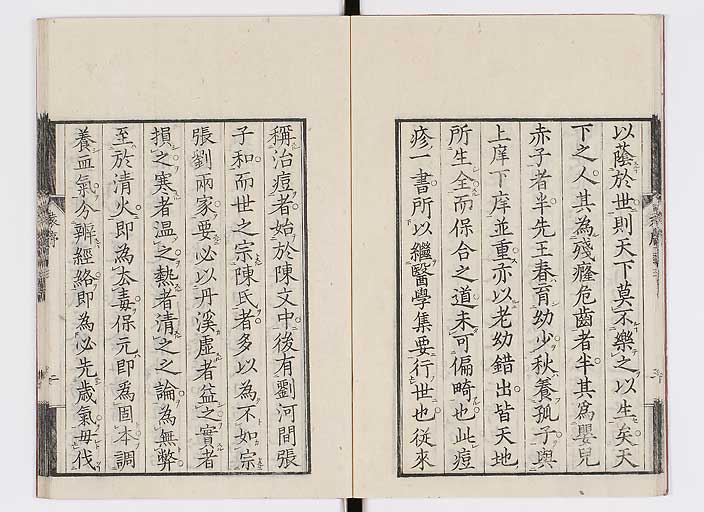 以蔭於世則天下莫不樂之以生矣天
下之人其為殘癃危齒者半其為嬰兒
赤子者半先王春育幼少秋養孤子與
上庠下庠並重亦以老幼錯出皆天地
所生全而保合之道未可偏畸也此痘
疹一書所以繼醫學集要行世也從來
稱治痘者始於陳文中後有劉河間張
子和而世之宗陳氏者多以為不如宗
張劉兩家要必以丹溪虛者益之實者
損之寒者温之熱者清之之論為無弊
至於清火即為去毒保元即為固本調
養血氣分辨經絡即為必先歲氣毋伐